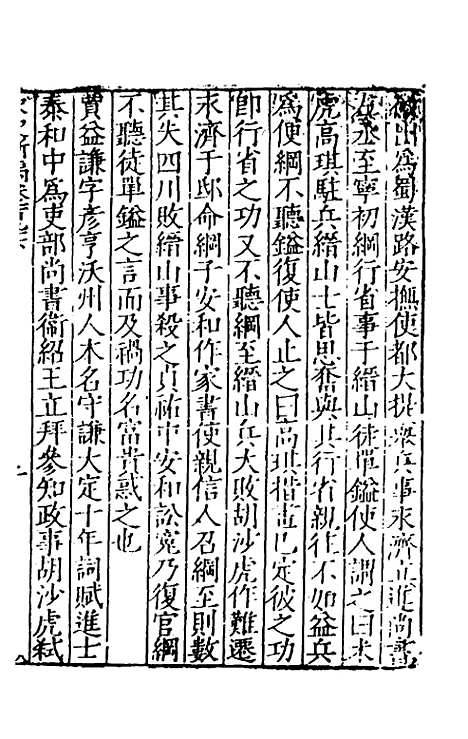 出爲蜀漢路安撫使都大提舉兵事永濟立進尚書
左丞至寧初綱行省事于縉山徒單鎰使人謂之曰朮
虎高琪駐兵縉山士皆思奮與其行省親往不如益兵
爲便綱不聽鎰復使人止之曰高琪措畫已定彼之功
卽行省之功又不聽綱至縉山兵大敗胡沙虎作難遷
永濟于邸命綱子安和作家書使親信人召綱至則數
其失四川敗縉山事殺之貞祐中安和訟寃乃復官綱
不聽徒單鎰之言而及禍功名富貴惑之也
賈益謙字彥亨沃州人本名守謙大定十年詞賦進士
泰和中爲吏部尚書衛紹王立拜參知政事胡沙虎弑